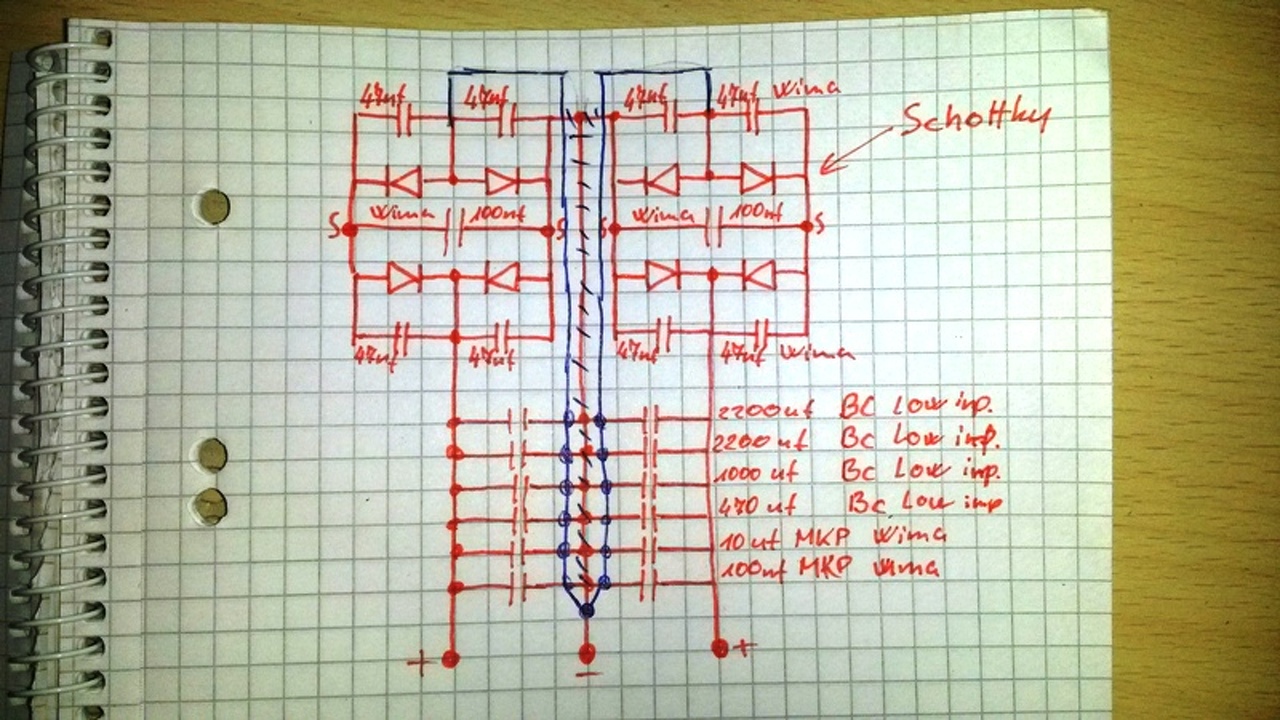 47uf 47uf 47uf 47uf Wima
Schottky
Wima 100uf Wima 100uf
S S S S
47uf 47uf 47uf 47uf Wima
2200uf BC Low inp.
2200uf BC Low imp.
1000uf BC Low imp.
470uf BC Low imp
10uf MKP Wima
100uf MKP Wima
+ - +